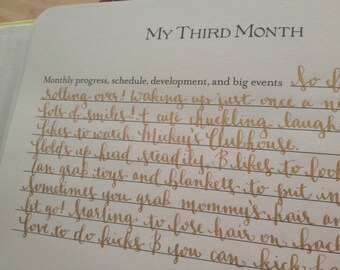 My Third Month
Monthly progress, schedule, development, and big events So
rolling over! Waking up just once a
lots of smiles! + cute chuckling laugh
likes to watch Mickey's Clubhouse.
Holds up head steadily. B likes to look
can grab toys and blankets to put in
sometimes you grab mommy's hair an
let go! Starting to lose hair on back
love to do kicks & you can kick ha